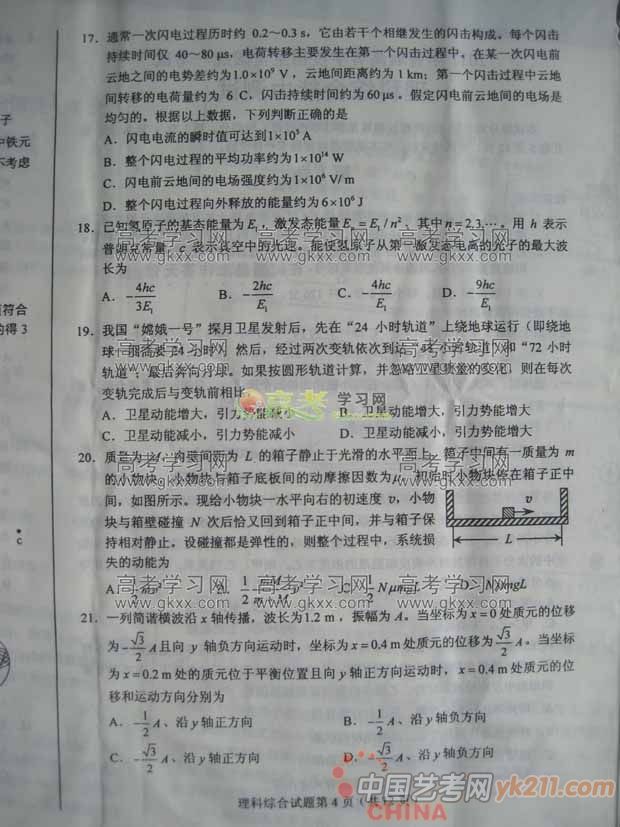 子
中铁元
不考虑
直符合
的得 3
c
17. 通常一次闪电过程历时约 0.2～0.3 s，它由若干个相继发生的闪击构成。每个闪击
持续时间仅 40～80 μs，电荷转移主要发生在第一个闪击过程中。在某一次闪电前
云地之间的电势差约为1.0×10⁹ V，云地间距离约为 1 km；第一个闪击过程中云地
间转移的电荷量约为 6 C，闪击持续时间约为60 μs。假定闪电前云地间的电场是
均匀的。根据以上数据，下列判断正确的是
A．闪电电流的瞬时值可达到1×10⁵ A
B．整个闪电过程的平均功率约为1×10¹⁴ W
C．闪电前云地间的电场强度约为1×10⁶ V/m
D．整个闪电过程向外释放的能量约为6×10⁶ J
18. 已知氢原子的基态能量为E₁，激发态能量Eₙ = E₁/n²，其中n = 2,3,…。用 h 表示
普朗克常量，c 表示真空中的光速。能使氢原子从第一激发态电离的光子的最大波
长为
A．-4hc/3E₁ B．-2hc/E₁ C．-4hc/E₁ D．-9hc/E₁
19. 我国“嫦娥一号”探月卫星发射后，先在“24 小时轨道”上绕地球运行（即绕地
球一圈需要 24 小时）；然后，经过两次变轨依次到达“48 小时轨道”和“72 小时
轨道”；最后奔向月球。如果按圆形轨道计算，并忽略卫星质量的变化，则在每次
变轨完成后与变轨前相比
A．卫星动能增大，引力势能减小 B．卫星动能增大，引力势能增大
C．卫星动能减小，引力势能减小 D．卫星动能减小，引力势能增大
20. 质量为 M、内壁间距为 L 的箱子静止于光滑的水平面上，箱子中间有一质量为 m
的小物块，小物块与箱子底板间的动摩擦因数为μ。初始时小物块停在箱子正中
间，如图所示。现给小物块一水平向右的初速度 v，小物
块与箱壁碰撞 N 次后恰又回到箱子正中间，并与箱子保
持相对静止。设碰撞都是弹性的，则整个过程中，系统损
失的动能为
v
L
A．1/2 mv² B．1/2 mM/(m+M) v² C．1/2 NμmgL D．NμmgL
21. 一列简谐横波沿 x 轴传播，波长为1.2 m，振幅为 A。当坐标为 x = 0 处质元的位移
为-√3/2 A且向 y 轴负方向运动时，坐标为 x = 0.4 m 处质元的位移为√3/2 A。当坐标
为 x = 0.2 m 处的质元位于平衡位置且向 y 轴正方向运动时，x = 0.4 m 处质元的位
移和运动方向分别为
A．-1/2 A、沿 y 轴正方向 B．-1/2 A、沿 y 轴负方向
C．-√3/2 A、沿 y 轴正方向 D．-√3/2 A、沿 y 轴负方向
理科综合试题第 4 页
高考学习网 高考学习网 高考学习网
www.gkxx.com www.gkxx.com www.gkxx.com
高考学习网 高考学习网 高考学习网
www.gkxx.com www.gkxx.com www.gkxx.com
高考 学习网
高考学习网 高考学习网 高考学习网
www.gkxx.com www.gkxx.com www.gkxx.com
高考学习网 高考学习网 高考学习网
www.gkxx.com www.gkxx.com www.gkxx.com
中国艺考网yk211.com
CHINA